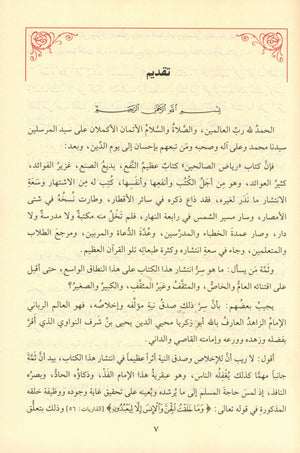 تقديم
بسم الله الرحمن الرحيم
الحمدُ لله ربِّ العالمين، والصَّلاةُ والسَّلامُ الأتمان الأكملان على سيد المرسلين
سيدنا محمد وعلى آله وصحبه ومَن تبعهم بإحسان إلى يوم الدِّين، وبعد:
فإنَّ كتاب «رياض الصالحين» كتابٌ عظيمُ النَّفع، بديعُ الصنع، غزيرُ الفوائد،
كثيرُ العوائد، وهو مِن أجَلِّ الكُتُب وأنفعِها وأنفَسِها، كُتِب له مِن الاشتهار وسَعَةِ
الانتشار ما نَدَر لغيره، فقد ذاع ذكره في سائر الأقطار، وطارت نُسخُهُ في شتى
الأمصار، وسار مسير الشمس في رابعة النهار، فلم تَخْلُ منه مكتبةٌ ولا مدرسةٌ ولا
دار، وصار عمدةَ الخطباء والمدرِّسين، وعُدَّة الدعاة والمربين، ومرجعَ الطلاب
والمتعلمين، وجاء في سعة انتشاره وكثرة طبعاته تلو القرآن العظيم.
وثَمَّة مَن يسأل: ما هو سرُّ انتشار هذا الكتاب على هذا النطاق الواسع، حتى أقبل
على اقتنائه العامُّ والخاصُّ، والمثقَّف وغيرُ المثقَّف، والكبيرُ والصغيرُ؟
يجيبُ بعضُهم: بأن سِرَّ ذلك صدقُ نيةِ مؤلِّفه وإخلاصُه، فهو العالم الرباني
الإمام الزاهدُ العارفُ بالله أبو زكريا محيي الدين يحيى بنُ شرف النواوي الذي أقرَّ
بفضله وزهده وورعه وإمامته القاصي والداني.
أقول: لا ريبَ أنَّ للإخلاص وصدق النية أثراً عظيماً في انتشار هذا الكتاب، بيد أنَّ ثمَّة
جانباً مهمًّا كذلك يُغْفِلُه الناس، وهو عبقريةُ هذا الإمام الفذِّ، وذكاؤُه الحادُّ، وبصرُه
النافذ، إذ لمسَ حاجةَ المسلم إلى ما يُرشده ويُعينه على تحقيق غاية وجوده ووظيفة خلقه
المذكورة في قوله تعالى: ﴿وَمَا خَلَقْتُ الْجِنَّ وَالْإِنسَ إِلَّا لِيَعْبُدُونِ﴾ [الذاريات: ٥٦] وذلك بتعلُّق
٧